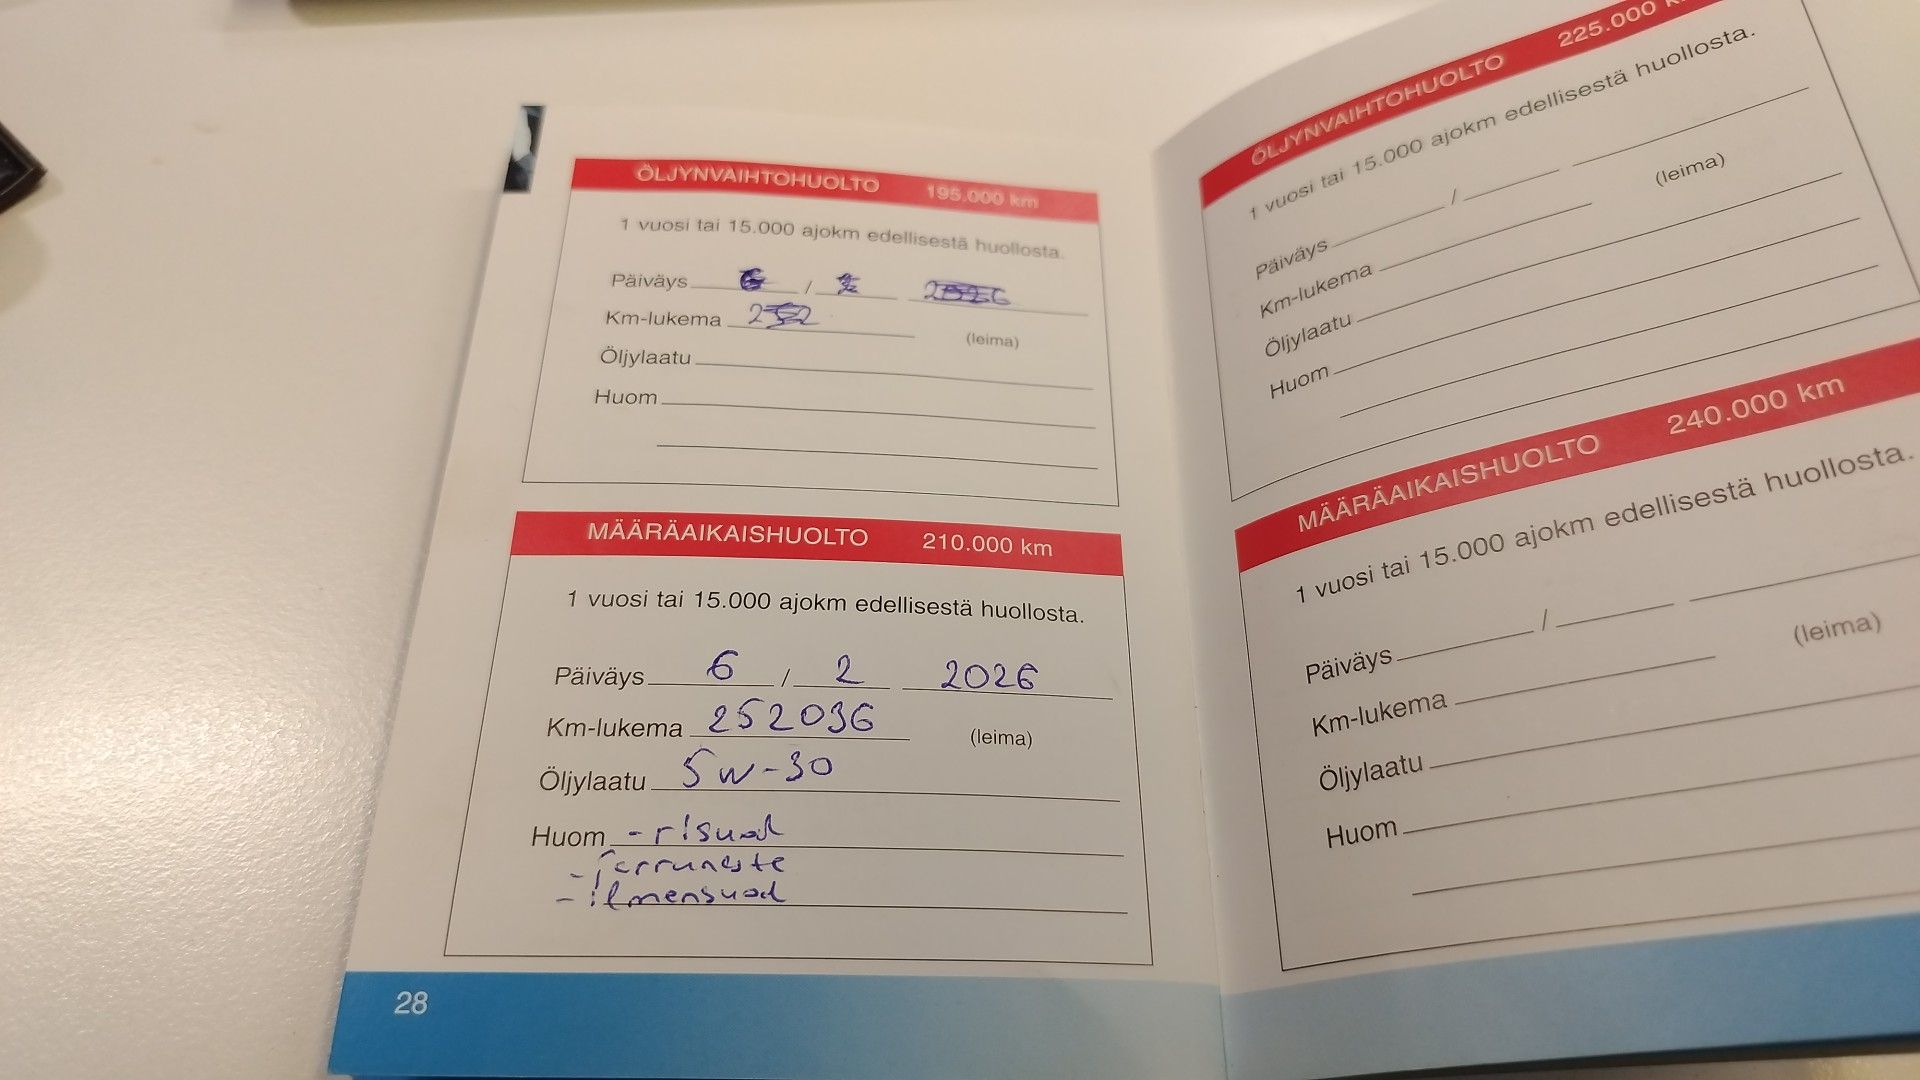 ÖLJYNVAIHTOHUOLTO 195.000 km
1 vuosi tai 15.000 ajokm edellisestä huollosta.
Päiväys 6 / 2 2026
Km-lukema 252
(leima)
Öljylaatu
Huom
MÄÄRÄAIKAISHUOLTO 210.000 km
1 vuosi tai 15.000 ajokm edellisestä huollosta.
Päiväys 6 / 2 2026
Km-lukema 252036
(leima)
Öljylaatu 5w-30
Huom - risuod
- jarruneste
- ilmensuod
28
ÖLJYNVAIHTOHUOLTO 225.000
1 vuosi tai 15.000 ajokm edellisestä huollosta.
Päiväys /
Km-lukema
(leima)
Öljylaatu
Huom
MÄÄRÄAIKAISHUOLTO 240.000 km
1 vuosi tai 15.000 ajokm edellisestä huollosta.
Päiväys /
Km-lukema
(leima)
Öljylaatu
Huom